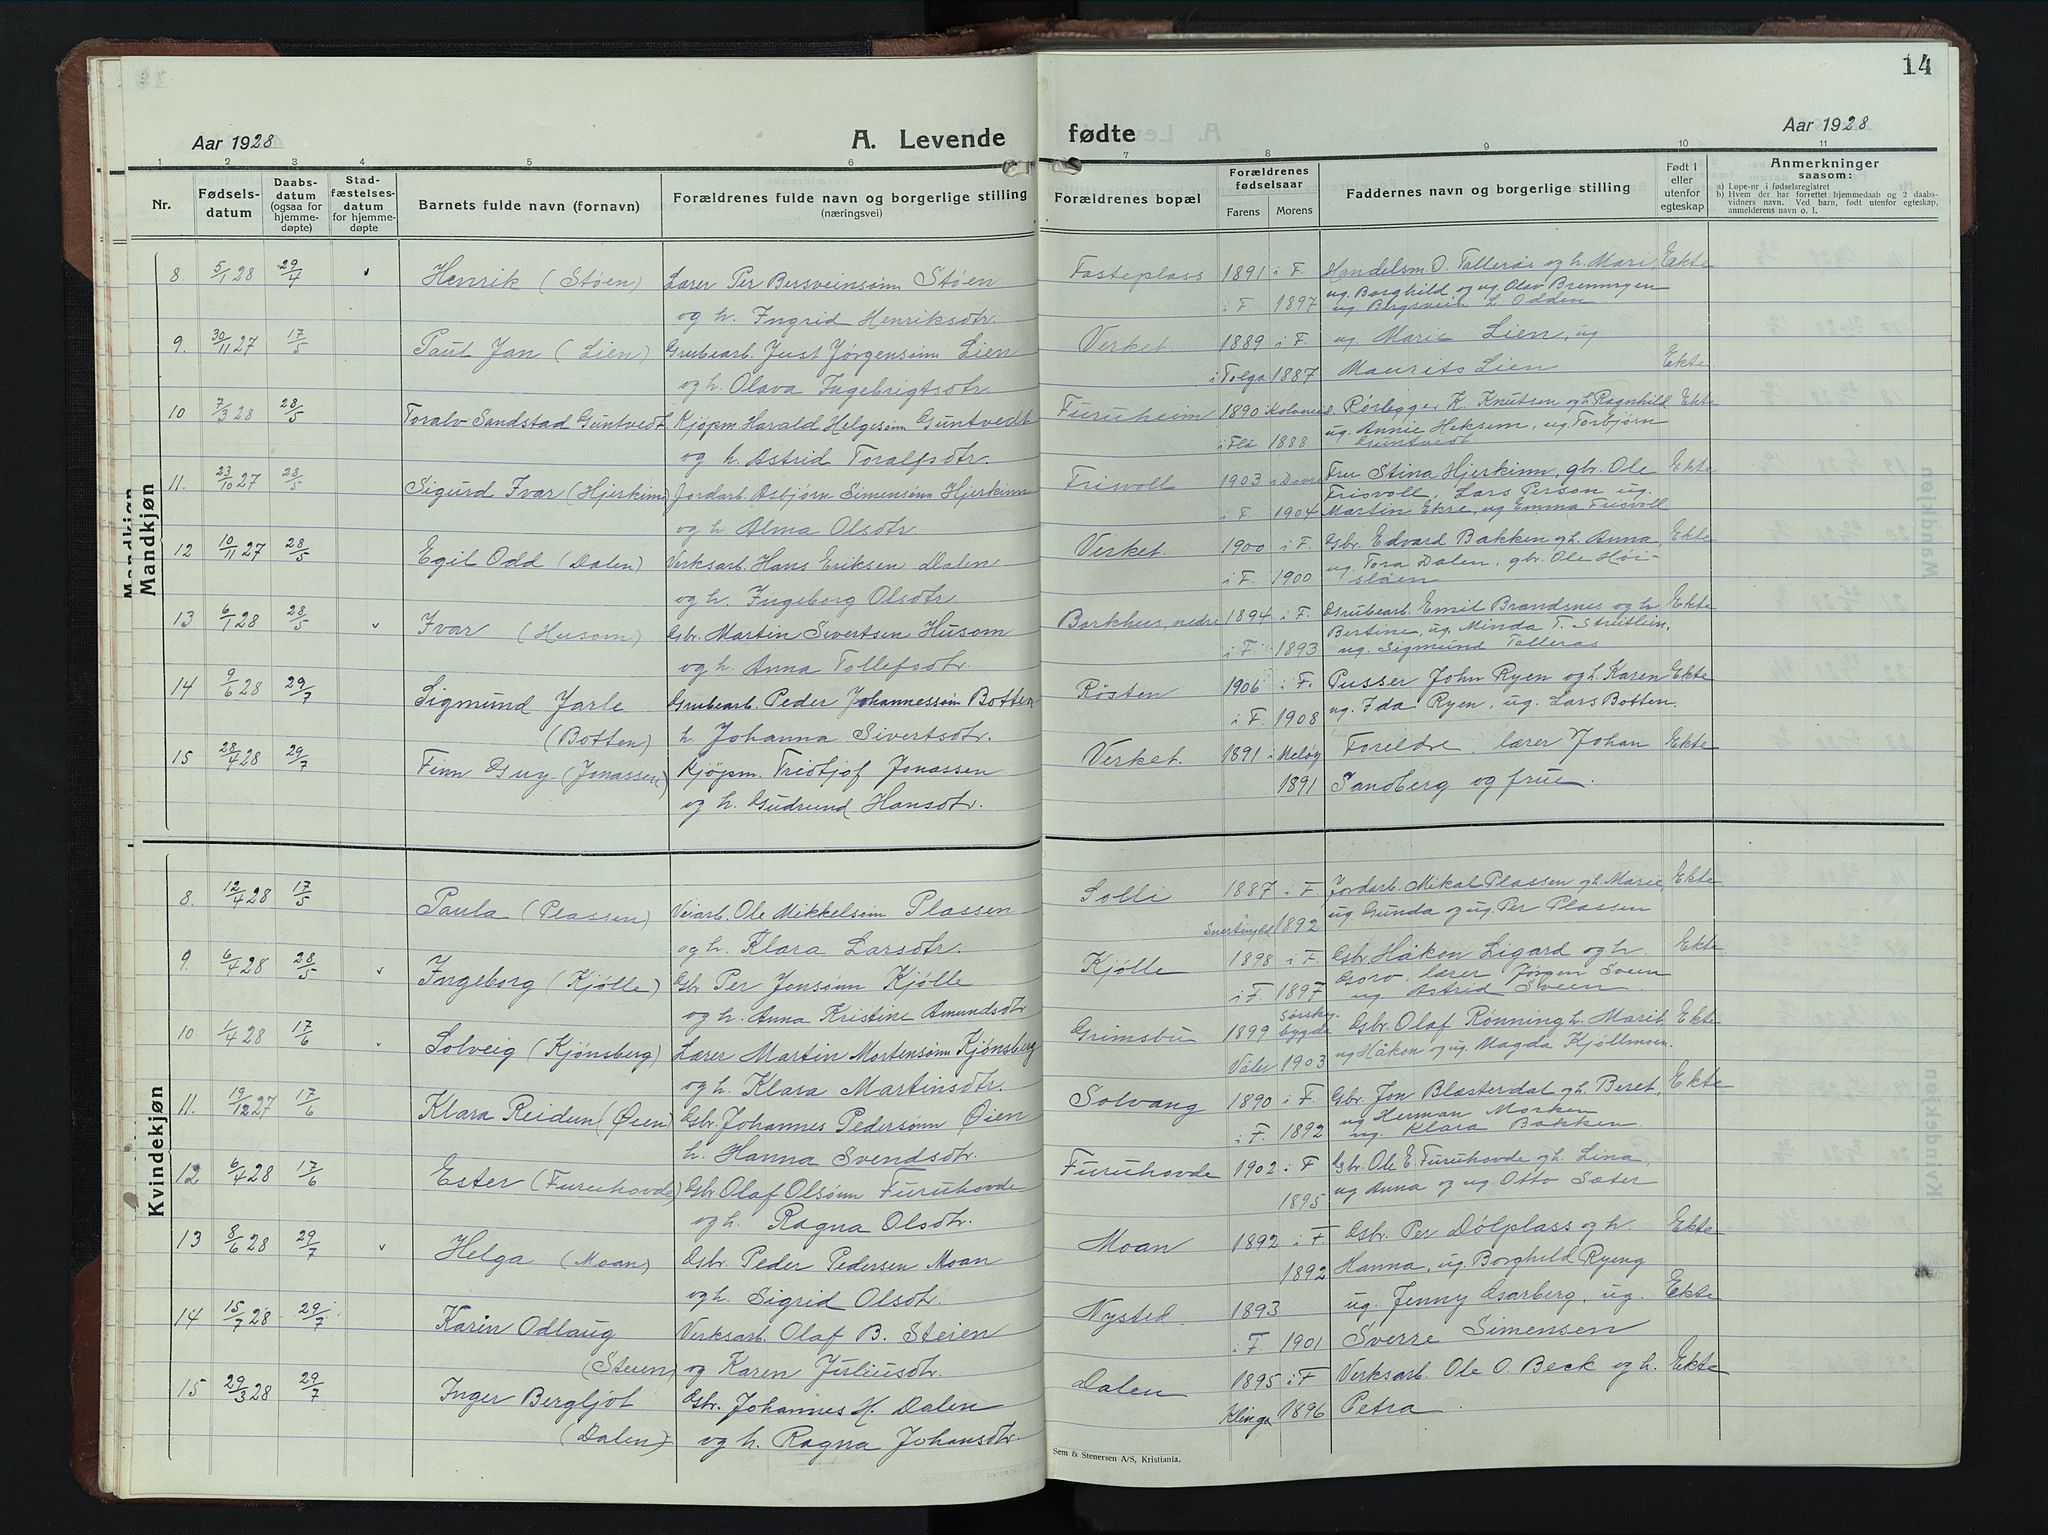 14
Aar 1928
A. Levende
fødte
Aar 1928
1 2 3 4 5 6 7 8 9 10 11
Nr.
Fødsels-
datum
Daabs-
datum
(ogsaa for
hjemme-
døpte)
Stad-
fæstelses-
datum
for hjemme-
døpte
Barnets fulde navn (fornavn)
Forældrenes fulde navn og borgerlige stilling
(næringsvei)
Forældrenes bopæl
Forældrenes
fødselsaar
Farens Morens
Faddernes navn og borgerlige stilling
Født i
eller
utenfor
egteskap
Anmerkninger
saasom:
a) Løpe-nr i fødselsregistret
b) Hvem der har forrettet hjemmedaab og 2 daabs-
vidners navn. Ved barn, født utenfor egteskap,
anmelderens navn o. l.
Mandkjøn
8. 5/1 28 29/4 Henrik (Støen) Lærer Per Bersveinsønn Støen Fasteplass 1891 i F. Handelsm O. Tallerås og h. Mari, Ekte
og h. Ingrid Henriksdtr. i F. 1897 ug. Borghild og ug. Olav Brennryen
ug. Bergsvein L. Odden
9. 30/11 27 17/5 Paul Jan (Lien) Grubearb. Just Jørgensønn Lien Verket. 1889 i F. ug. Marie Lien, ug
og h. Olava Ingebrigtsdtr. i Tolga 1887 Maurits Lien Ekte
10 7/3 28 28/5 Toralv Sandstad Guntvedt Kjøpm Harald Helgesønn Guntvedt Furuheim 1890 i Kolvereid. Rørlegger K. Knutsen og h. Ragnhild Ekte
og h. Astrid Toralfsdtr. i Flå 1888 ug. Annie Heksem, ug Torbjørn
Guntvedt
11. 23/10 27 28/5 Sigurd Ivar (Hjerkinn) Jordarb. Asbjørn Simensønn Hjerkinn Frisvoll 1903 i Dovre Fru Stina Hjerkinn, gbr. Ole Ekte
og h Alma Olsdtr. i F. 1904 Frisvoll, Lars Person ug.
Martin Ekre, ug Emma Frisvoll
12 10/11 27 28/5 Egil Odd (Dalen) Verksarb. Hans Eriksen Dalen Verket. 1900 i F. Gbr. Edvard Bakken og h. Anna, Ekte
og h. Ingeborg Olsdtr. i F. 1900 ug. Tora Dalen, gbr. Ole Høi-
sløen
13 6/1 28 28/5 Ivar (Husom) Gbr. Martin Sivertsen Husom Borkhus, nedre 1894 i F. Grubearb. Emil Brandsnes og h. Ekte
og h. Anna Tollefsdtr. i F. 1893 Bertine, ug. Minda T. Streitlien,
ug. Sigmund Tallerås
14 9/6 28 29/7 Sigmund Jarle Grubearb. Peder Johannessønn Botten Røsten 1906 i F. Pusser John Ryen og h. Karen Ekte
(Botten) h. Johanna Sivertsdtr. i F. 1908 ug. Ida Ryen, ug. Lars Botten.
15 28/4 28 29/7 Finn Guy (Jonassen) Kjøpm. Fridtjof Jonassen Verket. 1891 i Meløy Foreldre, lærer Johan Ekte
og h. Gudrund Hansdtr. 1891 Sandberg og frue.
Kvindekjøn
8. 12/4 28 17/5 Paula (Plassen) Veiarb. Ole Mikkelsønn Plassen Solli 1887 i F. Jordarb. Mikal Plassen og h. Marie, Ekte
og h. Klara Larsdtr. 1892 ug Gunda og ug. Per Plassen
9. 6/4 28 28/5 Ingeborg (Kjølle) Gbr Per Jonsønn Kjølle Kjølle 1898 i F. Gbr Håkon Ligard og h. Ekte
og h. Anna Kristine Amundsdtr i F. 1897 Goro, lærer Jørgen Sveen
ug Astrid Sveen.
10 1/4 28 17/6 Solveig (Kjønsberg) Lærer Martin Mortensønn Kjønsberg Grimsbu 1899 Gbr. Olaf Rønning h. Marit, Ekte
og h. Klara Martinsdtr. Våler 1903 ug Håkon og ug. Magda Kjøllmoen.
11. 19/12 27 17/6 Klara Reidun (Øien) Gbr. Johannes Pedersønn Øien Solvang 1890 i F. Gbr. Jon Blæsterdal og h. Beret, Ekte
h. Hanna Svendsdtr. i F. 1892 ug Herman Morken
ug. Klara Bakken.
12 6/4 28 17/6 Ester (Furuhovde) Gbr Olaf Olsønn Furuhovde Furuhovde 1902 i F Gbr. Ole E. Furuhovde og h. Lina,
og h. Ragna Olsdtr. 1895 ug Anna og ug Otto Sæter
13 8/6 28 29/7 Helga (Moan) Gbr. Peder Pedersen Moan Moan 1892 i F. Gbr. Per Dølplass og h. Ekte
og h. Sigrid Olsdtr. 1892 Hanna, ug. Borghild Ryeng
14 15/7 28 29/7 Karin Odlaug Verksarb. Olaf B. Steien Nysted 1893 ug. Jenny Aarberg, ug. Ekte
(Steien) og Karen Juliusdtr. i F. 1901 Sverre Simensen
15 29/3 28 29/7 Inger Bergljot Gbr. Johannes H. Dalen Dalen 1895 i F Verksarb. Ole O. Beck og h. Ekte
(Dalen) og h. Ragna Johansdtr. Klinga 1896 Petra.
Sem & Stenersen A/S, Kristiania.